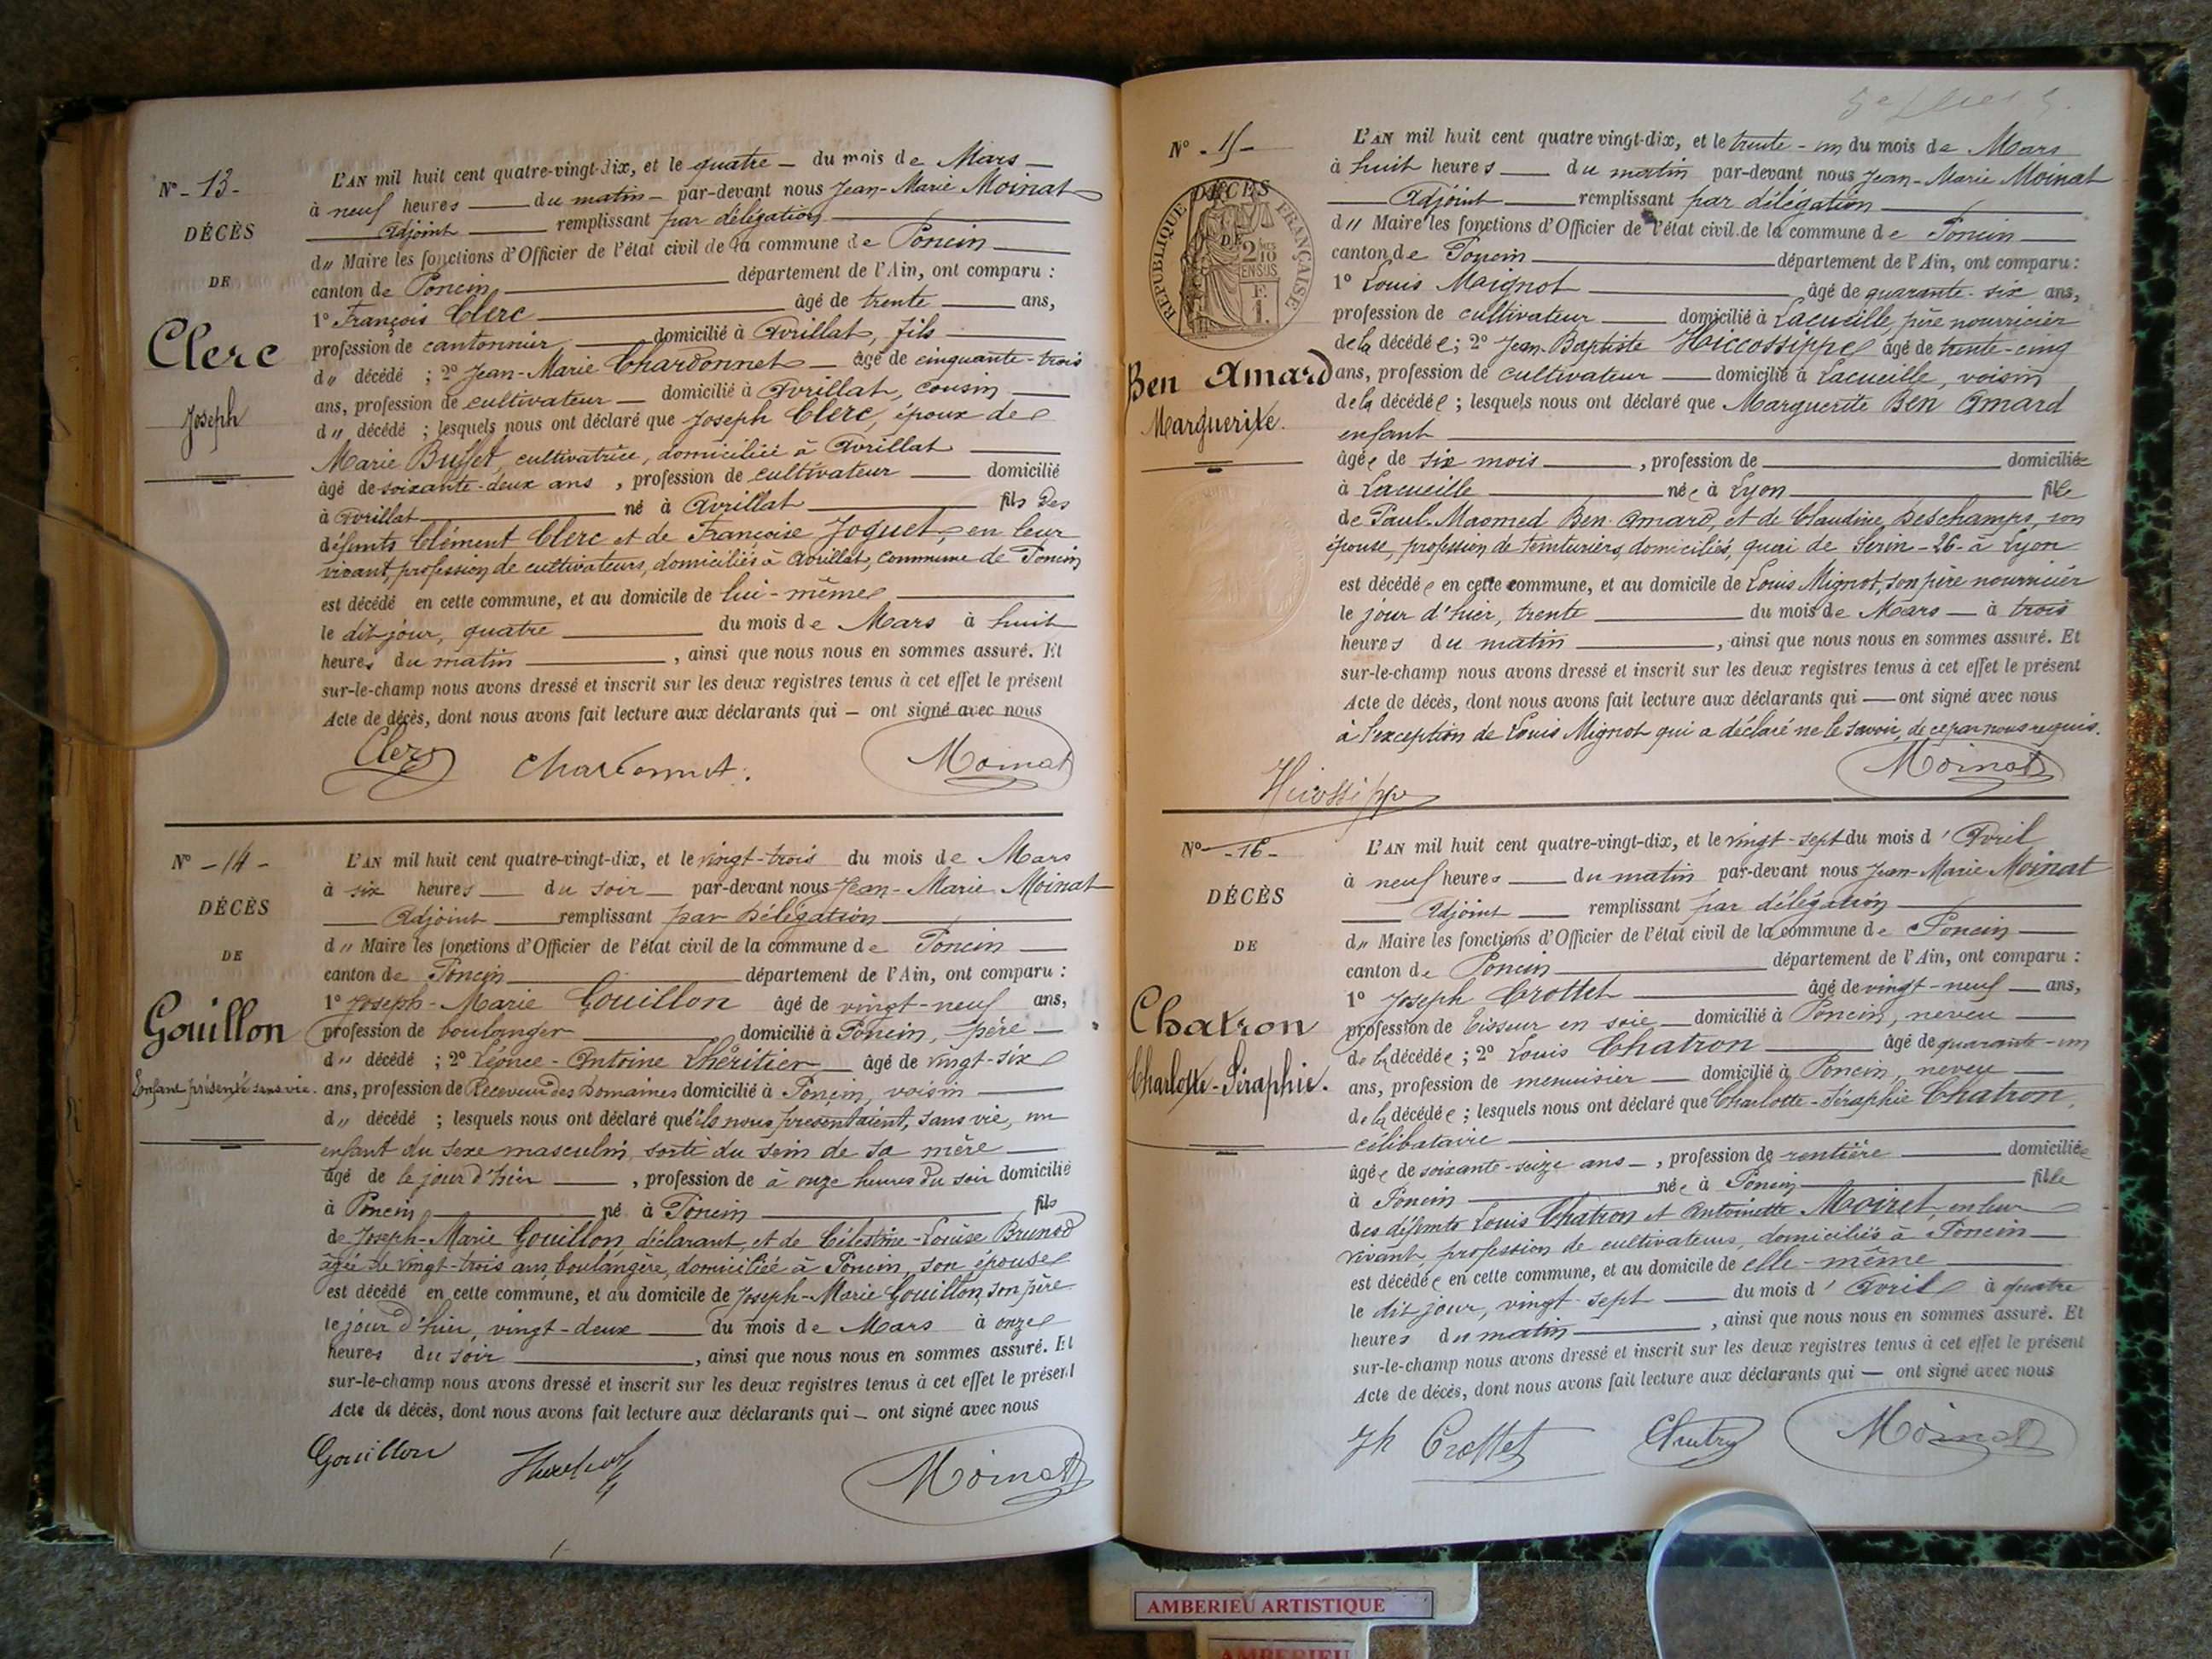 N° - 13 -
DÉCÈS
DE
Clerc
Joseph
L'AN mil huit cent quatre-vingt-dix, et le quatre - du mois de Mars
à neuf heures du matin - par-devant nous Jean-Marie Moinat
Adjoint remplissant par délégation
d" Maire les fonctions d'Officier de l'état civil de la commune de Poncin
canton de Poncin département de l'Ain, ont comparu :
1° François Clerc âgé de trente ans,
profession de cantonnier, domicilié à Avrillat, fils
d" décédé ; 2° Jean-Marie Chardonnet - âgé de cinquante-trois
ans, profession de cultivateur - domicilié à Avrillat, cousin
d" décédé ; lesquels nous ont déclaré que Joseph Clerc, époux de
Marie Buffet, cultivatrice, domiciliée à Avrillat
âgé de soixante-deux ans, profession de cultivateur domicilié
à Avrillat né à Avrillat fils des
défunts Clément Clerc et de Françoise Joguet, en leur
vivant, profession de cultivateurs, domiciliés à Avrillat, commune de Poncin
est décédé en cette commune, et au domicile de lui-même
le dit jour, quatre du mois de Mars à huit
heures du matin, ainsi que nous nous en sommes assuré. Et
sur-le-champ nous avons dressé et inscrit sur les deux registres tenus à cet effet le présent
Acte de décès, dont nous avons fait lecture aux déclarants qui - ont signé avec nous
Clerc Chardonnet. Moinat
N° - 14 -
DÉCÈS
DE
Gouillon
Enfant présenté sans vie.
L'AN mil huit cent quatre-vingt-dix, et le vingt-trois du mois de Mars
à six heures du soir par-devant nous Jean-Marie Moinat
Adjoint remplissant par délégation
d" Maire les fonctions d'Officier de l'état civil de la commune de Poncin
canton de Poncin département de l'Ain, ont comparu :
1° Joseph-Marie Gouillon âgé de vingt-neuf ans,
profession de boulanger domicilié à Poncin, père
d" décédé ; 2° Léonce-Antoine Lhéritier âgé de vingt-six
ans, profession de Receveur des Domaines domicilié à Poncin, voisin
d" décédé ; lesquels nous ont déclaré qu'ils nous presentaient, sans vie, un
enfant du sexe masculin, sorti du sein de sa mère
âgé de le jour d'hier, profession de à onze heures du soir domicilié
à Poncin né à Poncin fils
de Joseph-Marie Gouillon, déclarant, et de Célestine-Louise Brunod
âgée de vingt-trois ans, boulangère, domiciliée à Poncin, son épouse
est décédé en cette commune, et au domicile de Joseph-Marie Gouillon, son père
le jour d'hier, vingt-deux du mois de Mars à onze
heures du soir, ainsi que nous nous en sommes assuré. Et
sur-le-champ nous avons dressé et inscrit sur les deux registres tenus à cet effet le présent
Acte de décès, dont nous avons fait lecture aux déclarants qui - ont signé avec nous
Gouillon Moinat
N° - 15 -
RÉPUBLIQUE FRANÇAISE
2/10 EN SUS
F. 1.
DÉCÈS
DE
Ben Amard
Marguerite.
L'AN mil huit cent quatre-vingt-dix, et le trente-un du mois de Mars
à huit heures du matin par-devant nous Jean-Marie Moinat
Adjoint remplissant par délégation
d" Maire les fonctions d'Officier de l'état civil de la commune de Poncin
canton de Poncin département de l'Ain, ont comparu :
1° Louis Maignot âgé de quarante-six ans,
profession de cultivateur domicilié à Lacueille, père nourricier
de la décédée ; 2° Jean-Baptiste Hiccossippe âgé de trente-cinq
ans, profession de cultivateur domicilié à Lacueille, voisin
de la décédée ; lesquels nous ont déclaré que Marguerite Ben Amard
enfant
âgée de six mois, profession de domiciliée
à Lacueille née à Lyon fille
de Paul-Maomed Ben-Amard, et de Claudine Deschamps, son
épouse, profession de teinturiers, domiciliés, quai de Serin - 26 - à Lyon
est décédée en cette commune, et au domicile de Louis Mignot, son père nourricier
le jour d'hier, trente du mois de Mars à trois
heures du matin, ainsi que nous nous en sommes assuré. Et
sur-le-champ nous avons dressé et inscrit sur les deux registres tenus à cet effet le présent
Acte de décès, dont nous avons fait lecture aux déclarants qui - ont signé avec nous
à l'exception de Louis Mignot qui a déclaré ne le savoir, de ce par nous requis.
Hicossippe Moinat
N° - 16 -
DÉCÈS
DE
Chatron
Charlotte-Séraphie.
L'AN mil huit cent quatre-vingt-dix, et le vingt-sept du mois d'Avril
à neuf heures du matin par-devant nous Jean-Marie Moinat
Adjoint remplissant par délégation
d" Maire les fonctions d'Officier de l'état civil de la commune de Poncin
canton de Poncin département de l'Ain, ont comparu :
1° Joseph Crottet âgé de vingt-neuf ans,
profession de tisseur en soie domicilié à Poncin, neveu
de la décédée ; 2° Louis Chatron âgé de quarante-un
ans, profession de menuisier domicilié à Poncin, neveu
de la décédée ; lesquels nous ont déclaré que Charlotte-Séraphie Chatron,
célibataire
âgée de soixante-seize ans, profession de rentière domiciliée
à Poncin née à Poncin fille
des défunts Louis Chatron et Antoinette Moiret, en leur
vivant, profession de cultivateurs, domiciliés à Poncin
est décédée en cette commune, et au domicile de elle-même
le dit jour, vingt-sept du mois d'Avril à quatre
heures du matin, ainsi que nous nous en sommes assuré. Et
sur-le-champ nous avons dressé et inscrit sur les deux registres tenus à cet effet le présent
Acte de décès, dont nous avons fait lecture aux déclarants qui - ont signé avec nous
Jh Crottet Moinat
AMBERIEU ARTISTIQUE
AMBERIEU